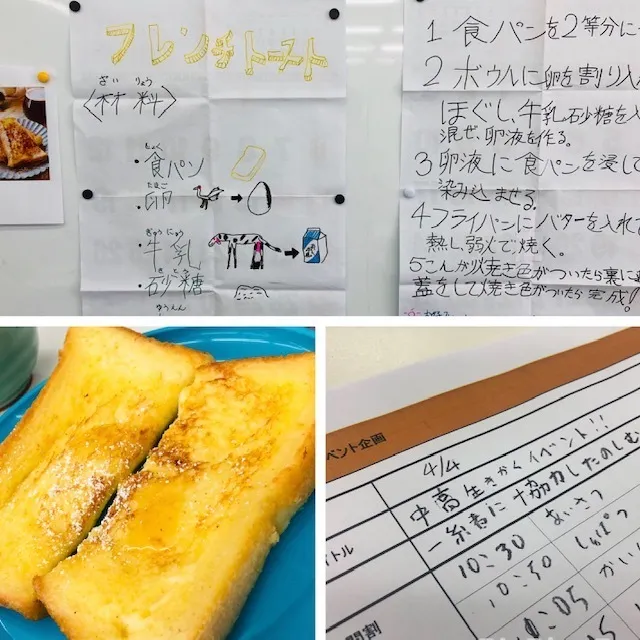 フレンチトースト
ざいりょう
〈材料〉
しょく
・食パン
たまご
・卵
ぎゅうにゅう
・牛乳
さとう
・砂糖
1 食パンを2等分に
2 ボウルに卵を割り入
ほぐし、牛乳、砂糖を入
混ぜ、卵液を作る。
3 卵液に食パンを浸して
染み込ませる。
4 フライパンにバターを入れ
熱し弱火で焼く。
5こんがり焼き色がついたら裏に
蓋をして焼き色がついたら完成!
ベント企画
4/4
中高生きかくイベント!!
イトル
一緒に協力したのしむ
10:30 あいさつ
10:50 しゅっぱつ
間割